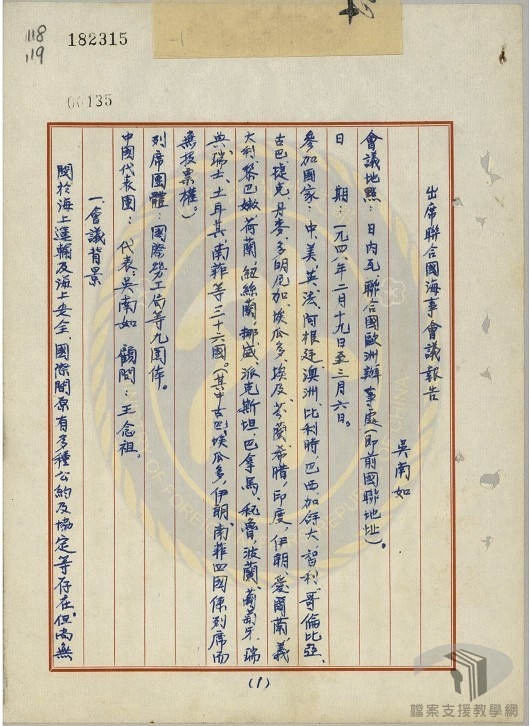 118
119
182315
00135
出席聯合國海事會議報告
吳南如
會議地點：日內瓦聯合國歐洲辦事處（即前國聯地址）。
日期：一九四八年二月十九日至三月六日。
參加國家：中、美、英、法、阿根廷、澳洲、比利時、巴西、加拿大、智利、哥倫比亞、
古巴、捷克、丹麥、多明尼加、埃瓜多、埃及、芬蘭、希臘、印度、伊朗、愛爾蘭、義
大利、黎巴嫩、荷蘭、紐絲蘭、挪威、派克斯坦、巴拿馬、秘魯、波蘭、葡萄牙、瑞
典、瑞士、土耳其、南菲等三十六國。（其中古巴、埃瓜多、伊朗、南菲四國係列席而
無投票權。）
列席團體：國際勞工局等九團体。
中國代表團：代表：吳南如 顧問：王念祖。
一、會議背景
關於海上運輸及海上安全，國際間原有多種公約及協定等存在。但尚無
(1)
檔案支援教學網